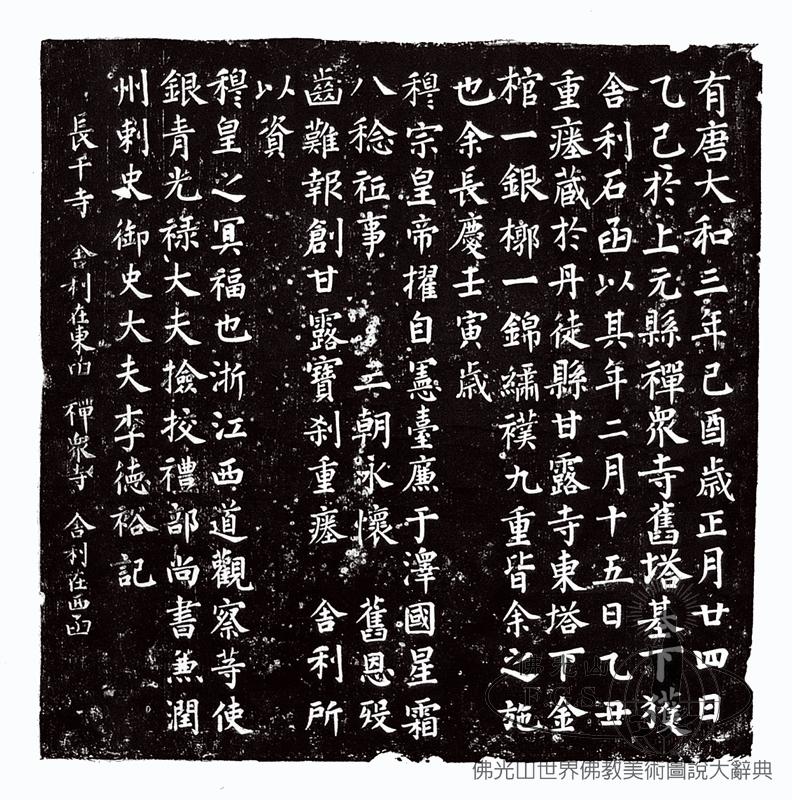 有唐大和三年己酉歲正月廿四日
乙己於上元縣禪眾寺舊塔基下獲
舍利石函以其年二月十五日乙丑
重瘞藏於丹徒縣甘露寺東塔下金
棺一銀槨一錦繡襆九重皆余之施
也余長慶壬寅歲
穆宗皇帝擢自憲臺廉于澤國星霜
八稔祗事 二朝永懷 舊恩歿
齒難報創甘露寶剎重瘞 舍利所
以資
穆皇之冥福也浙江西道觀察等使
銀青光祿大夫撿挍禮部尚書兼潤
州刺史御史大夫李德裕記
長干寺 舍利在東函 禪眾寺 舍利在西函
佛光山世界佛教美術圖說大辭典